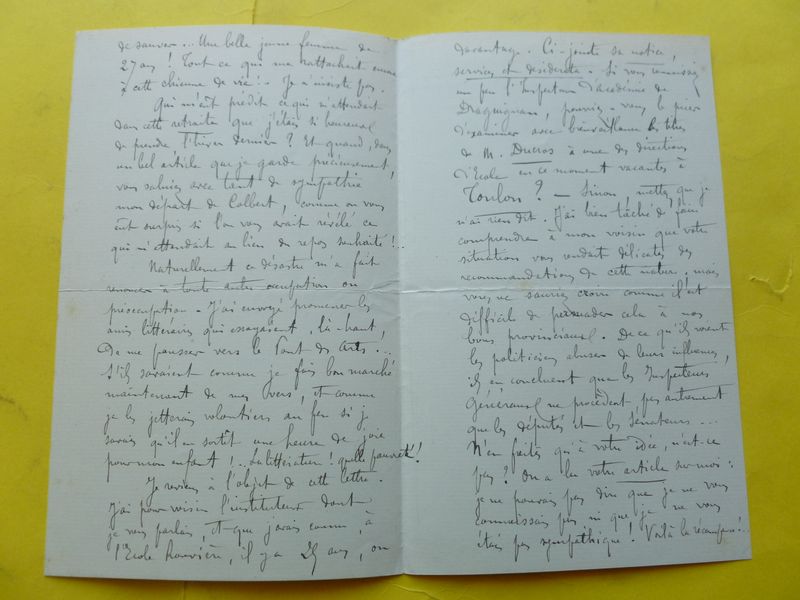 de sauver... Une belle jeune femme de
27 ans ! Tout ce qui me rattachait encore
à cette chienne de vie !.. Je n'insiste pas.
Qui m'eût prédit ce qui m'attendait
dans cette retraite que j'étais si heureux
de prendre l'hiver dernier ? Et quand, dans
un bel article que je garde précieusement,
vous saluiez avec tant de sympathie
mon départ de Colbert, comme on vous
eût surpris si l'on vous avait révélé ce
qui m'attendait au lieu du repos souhaité !..
Naturellement ce désastre m'a fait
renoncer à toute autre occupation ou
préoccupation. J'ai envoyé promener les
amis littéraires qui essayaient, là-haut,
de me pousser vers le Pont des Arts...
S'ils savaient comme je fais bon marché
maintenant de mes vers, et comme
je les jetterais volontiers au feu si je
savais qu'il en sortît une heure de joie
pour mon enfant !.. La littérature ! quelle pauvreté !
Je reviens à l'objet de cette lettre.
J'ai pour voisin l'instituteur dont
je vous parlais, et que j'avais connu, à
l'Ecole Rouvière, il y a 25 ans, ou
davantage. Ci-jointe sa notice,
services et desiderata. Si vous connaissiez
un peu l'Inspecteur d'académie de
Draguignan, pourriez-vous le prier
d'examiner avec bienveillance les titres
de M. Ducros à une des directions
d'Ecole en ce moment vacantes à
Toulon ? — Sinon, mettez que je
n'ai rien dit. J'ai bien tâché de faire
comprendre à mon voisin que votre
situation vous rendait délicates des
recommandations de cette nature. mais
vous ne sauriez croire comme il est
difficile de persuader cela à nos
bons provinciaux. De ce qu'ils voient
les politiciens abuser de leurs influences,
ils en concluent que les Inspecteurs
Généraux ne procèdent pas autrement
que les députés et les sénateurs...
N'en faites qu'à votre idée, n'est-ce
pas ? On a lu votre article sur moi :
je ne pouvais pas dire que je ne vous
connaissais pas, ni que je ne vous
étais pas sympathique ! Voilà la récompense !..